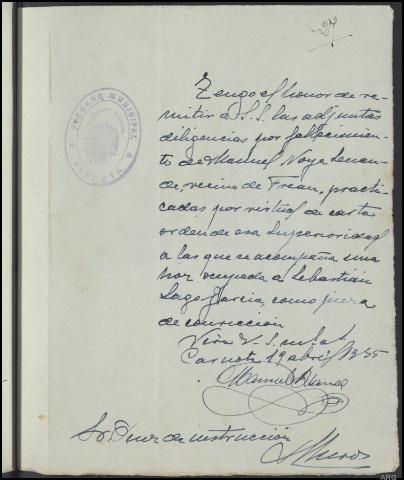 27
JUZGADO MUNICIPAL
Tengo el honor de re-
mitir a S.S. las adjuntas
diligencias por fallecimien-
to de Manuel Noya
de, vecino de practi-
cadas por virtud de carta
orden de esa Superioridad
a las que se acompaña una
hoz ocupada a Sebastian
Lago Garcia, como pieza
de convicción
Viva V. S. m. a.
Carnota 19 abril 1935
Manuel Blanco
Sr. Juez de instrucción
Muros
ARG